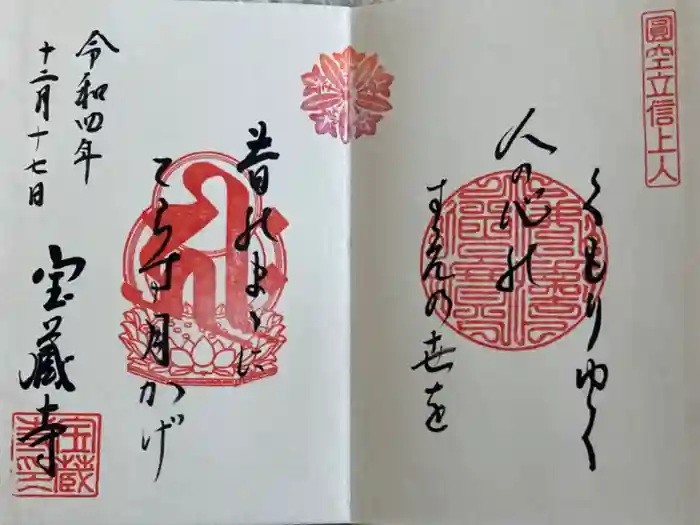 圓空立信上人
くもりゆく
人の心の
すえの世を
昔のまゝに
てらす月かげ
令和四年
十二月十七日
宝蔵寺
宝蔵
寺印